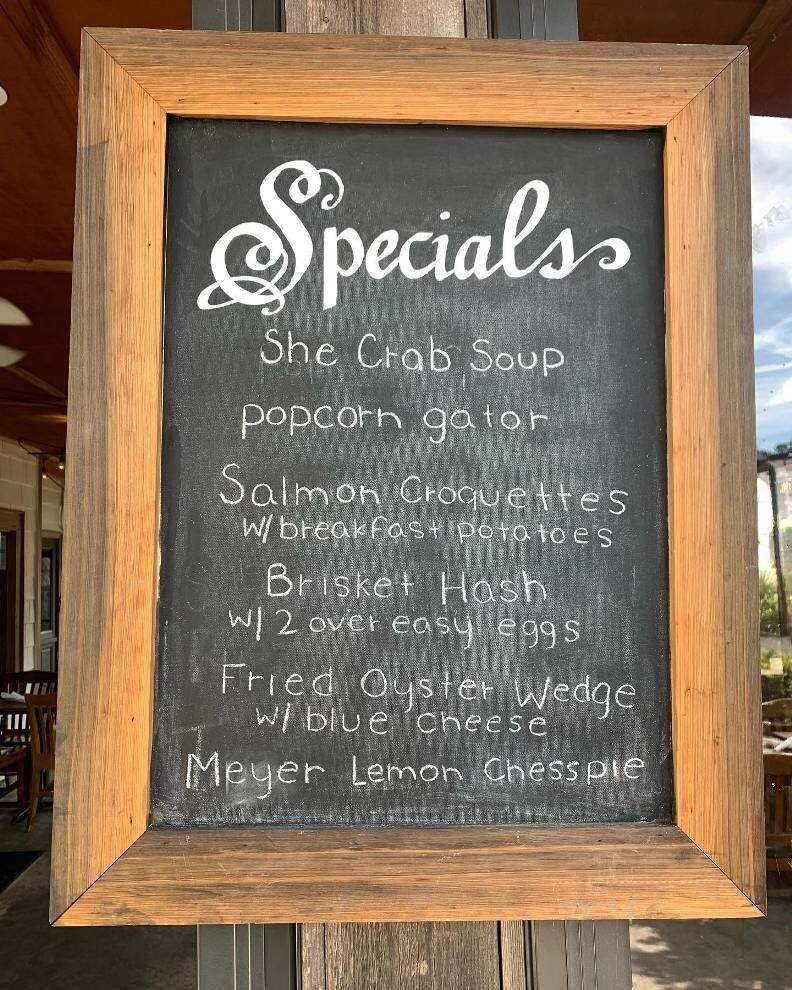 Specials
She Crab Soup
popcorn gator
Salmon Croquettes
w/breakfast potatoes
Brisket Hash
w/ 2 over easy eggs
Fried Oyster Wedge
w/ blue cheese
Meyer Lemon Chesspie